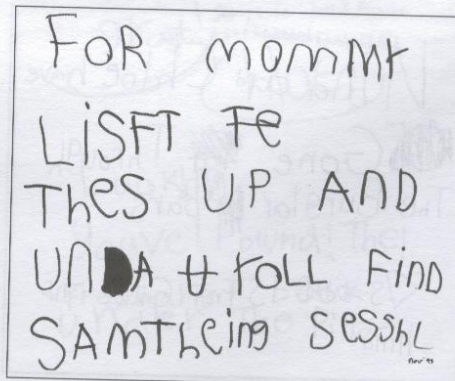 FOR mommy
LiSFT Fe
ThES UP AND
UNDA U roLL FiND
SAMTheing SesshL
Nov '93